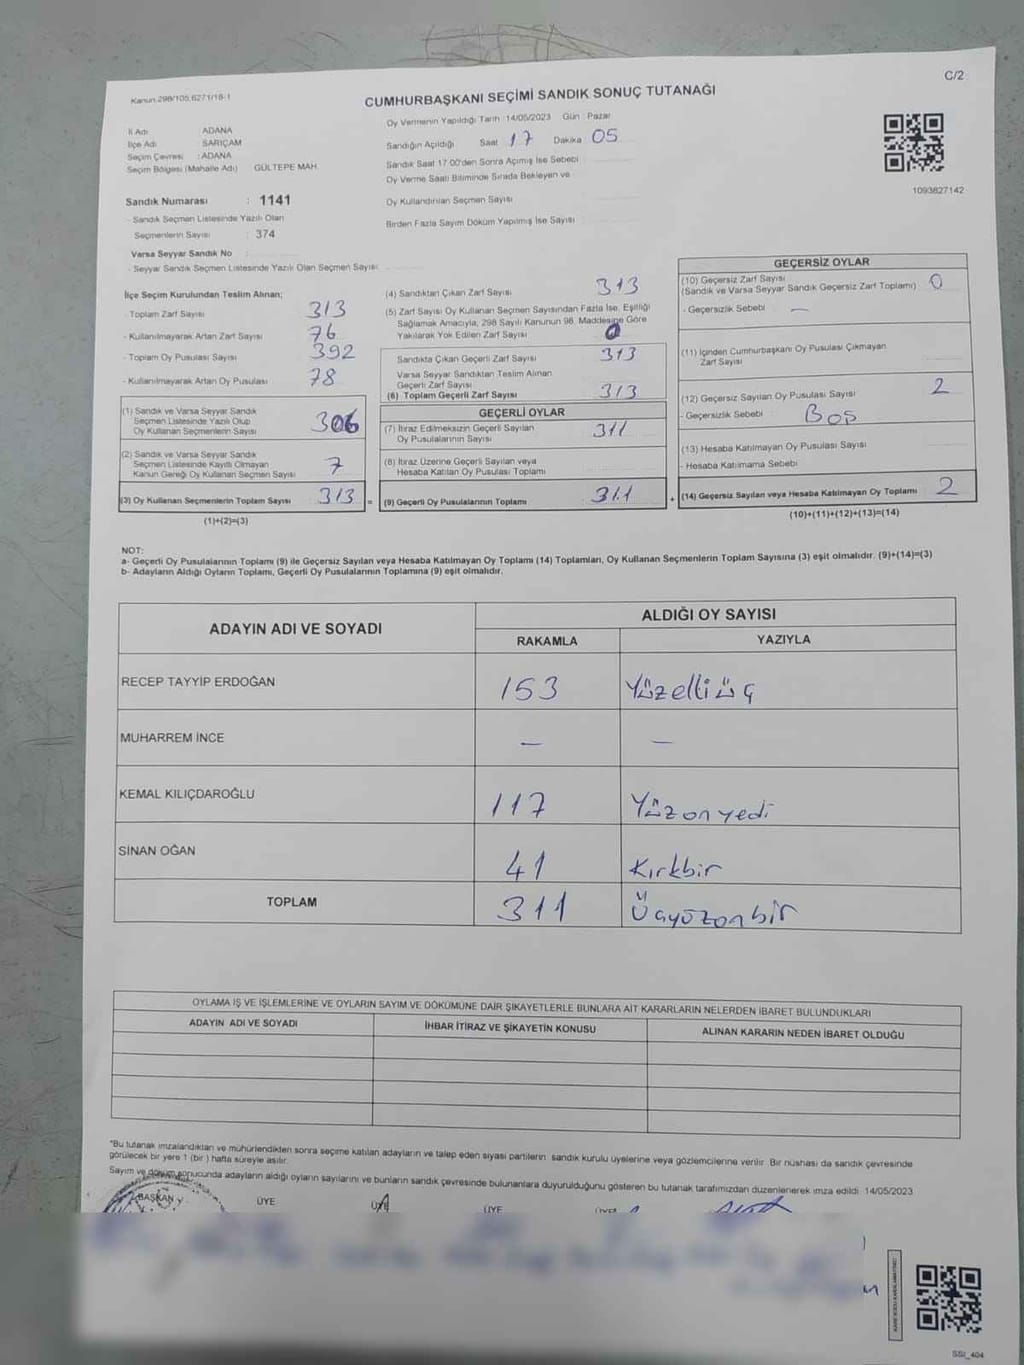 C/2
Kanun.298/105,6271/18-1
CUMHURBAŞKANI SEÇİMİ SANDIK SONUÇ TUTANAĞI
İl Adı ADANA
İlçe Adı SARIÇAM
Seçim Çevresi : ADANA
Seçim Bölgesi (Mahalle Adı) GÜLTEPE MAH.
Oy Vermenin Yapıldığı Tarih : 14/05/2023 Gün : Pazar
Sandığın Açıldığı Saat 17 Dakika 05
Sandık Saat 17:00'den Sonra Açımış İse Sebebi
Oy Verme Saati Bitiminde Sırada Bekleyen ve
Oy Kullandırılan Seçmen Sayısı
Birden Fazla Sayım Döküm Yapılmış İse Sayısı
1093827142
Sandık Numarası : 1141
- Sandık Seçmen Listesinde Yazılı Olan
Seçmenlerin Sayısı : 374
Varsa Seyyar Sandık No
- Seyyar Sandık Seçmen Listesinde Yazılı Olan Seçmen Sayısı:
İlçe Seçim Kurulundan Teslim Alınan;
- Toplam Zarf Sayısı 313
- Kullanılmayarak Artan Zarf Sayısı 76
- Toplam Oy Pusulası Sayısı 392
- Kullanılmayarak Artan Oy Pusulası 78
(1) Sandık ve Varsa Seyyar Sandık
Seçmen Listesinde Yazılı Olup
Oy Kullanan Seçmenlerin Sayısı 306
(2) Sandık ve Varsa Seyyar Sandık
Seçmen Listesinde Kayıtlı Olmayan
Kanun Gereği Oy Kullanan Seçmen Sayısı 7
(3) Oy Kullanan Seçmenlerin Toplam Sayısı 313 =
(1)+(2)=(3)
(4) Sandıktan Çıkan Zarf Sayısı 313
(5) Zarf Sayısı Oy Kullanan Seçmen Sayısından Fazla İse, Eşitliği
Sağlamak Amacıyla, 298 Sayılı Kanunun 98. Maddesine Göre
Yakılarak Yok Edilen Zarf Sayısı 0
Sandıkta Çıkan Geçerli Zarf Sayısı 313
Varsa Seyyar Sandıktan Teslim Alınan
Geçerli Zarf Sayısı
(6) Toplam Geçerli Zarf Sayısı 313
GEÇERLİ OYLAR
(7) İtiraz Edilmeksizin Geçerli Sayılan
Oy Pusulalarının Sayısı 311
(8) İtiraz Üzerine Geçerli Sayılan veya
Hesaba Katılan Oy Pusulası Toplamı
(9) Geçerli Oy Pusulalarının Toplamı 311 +
GEÇERSİZ OYLAR
(10) Geçersiz Zarf Sayısı
(Sandık ve Varsa Seyyar Sandık Geçersiz Zarf Toplamı) 0
- Geçersizlik Sebebi —
(11) İçinden Cumhurbaşkanı Oy Pusulası Çıkmayan
Zarf Sayısı
(12) Geçersiz Sayılan Oy Pusulası Sayısı 2
- Geçersizlik Sebebi Boş
(13) Hesaba Katılmayan Oy Pusulası Sayısı
- Hesaba Katılmama Sebebi
(14) Geçersiz Sayılan veya Hesaba Katılmayan Oy Toplamı 2
(10)+(11)+(12)+(13)=(14)
NOT:
a- Geçerli Oy Pusulalarının Toplamı (9) ile Geçersiz Sayılan veya Hesaba Katılmayan Oy Toplamı (14) Toplamları, Oy Kullanan Seçmenlerin Toplam Sayısına (3) eşit olmalıdır. (9)+(14)=(3)
b- Adayların Aldığı Oyların Toplamı, Geçerli Oy Pusulalarının Toplamına (9) eşit olmalıdır.
ADAYIN ADI VE SOYADI ALDIĞI OY SAYISI
RAKAMLA YAZIYLA
RECEP TAYYİP ERDOĞAN 153 Yüzelliüç
MUHARREM İNCE — —
KEMAL KILIÇDAROĞLU 117 Yüzonyedi
SİNAN OĞAN 41 Kırkbir
TOPLAM 311 Üçyüzonbir
OYLAMA İŞ VE İŞLEMLERİNE VE OYLARIN SAYIM VE DÖKÜMÜNE DAİR ŞİKAYETLERLE BUNLARA AİT KARARLARIN NELERDEN İBARET BULUNDUKLARI
ADAYIN ADI VE SOYADI İHBAR İTİRAZ VE ŞİKAYETİN KONUSU ALINAN KARARIN NEDEN İBARET OLDUĞU
*Bu tutanak imzalandıktan ve mühürlendikten sonra seçime katılan adayların ve talep eden siyasi partilerin sandık kurulu üyelerine veya gözlemcilerine verilir. Bir nüshası da sandık çevresinde
görülecek bir yere 1 (bir) hafta süreyle asılır.
Sayım ve döküm sonucunda adayların aldığı oyların sayılarını ve bunların sandık çevresinde bulunanlara duyurulduğunu gösteren bu tutanak tarafımızdan düzenlenerek imza edildi. 14/05/2023
BAŞKAN ÜYE ÜYE ÜYE ÜYE
SSI_404